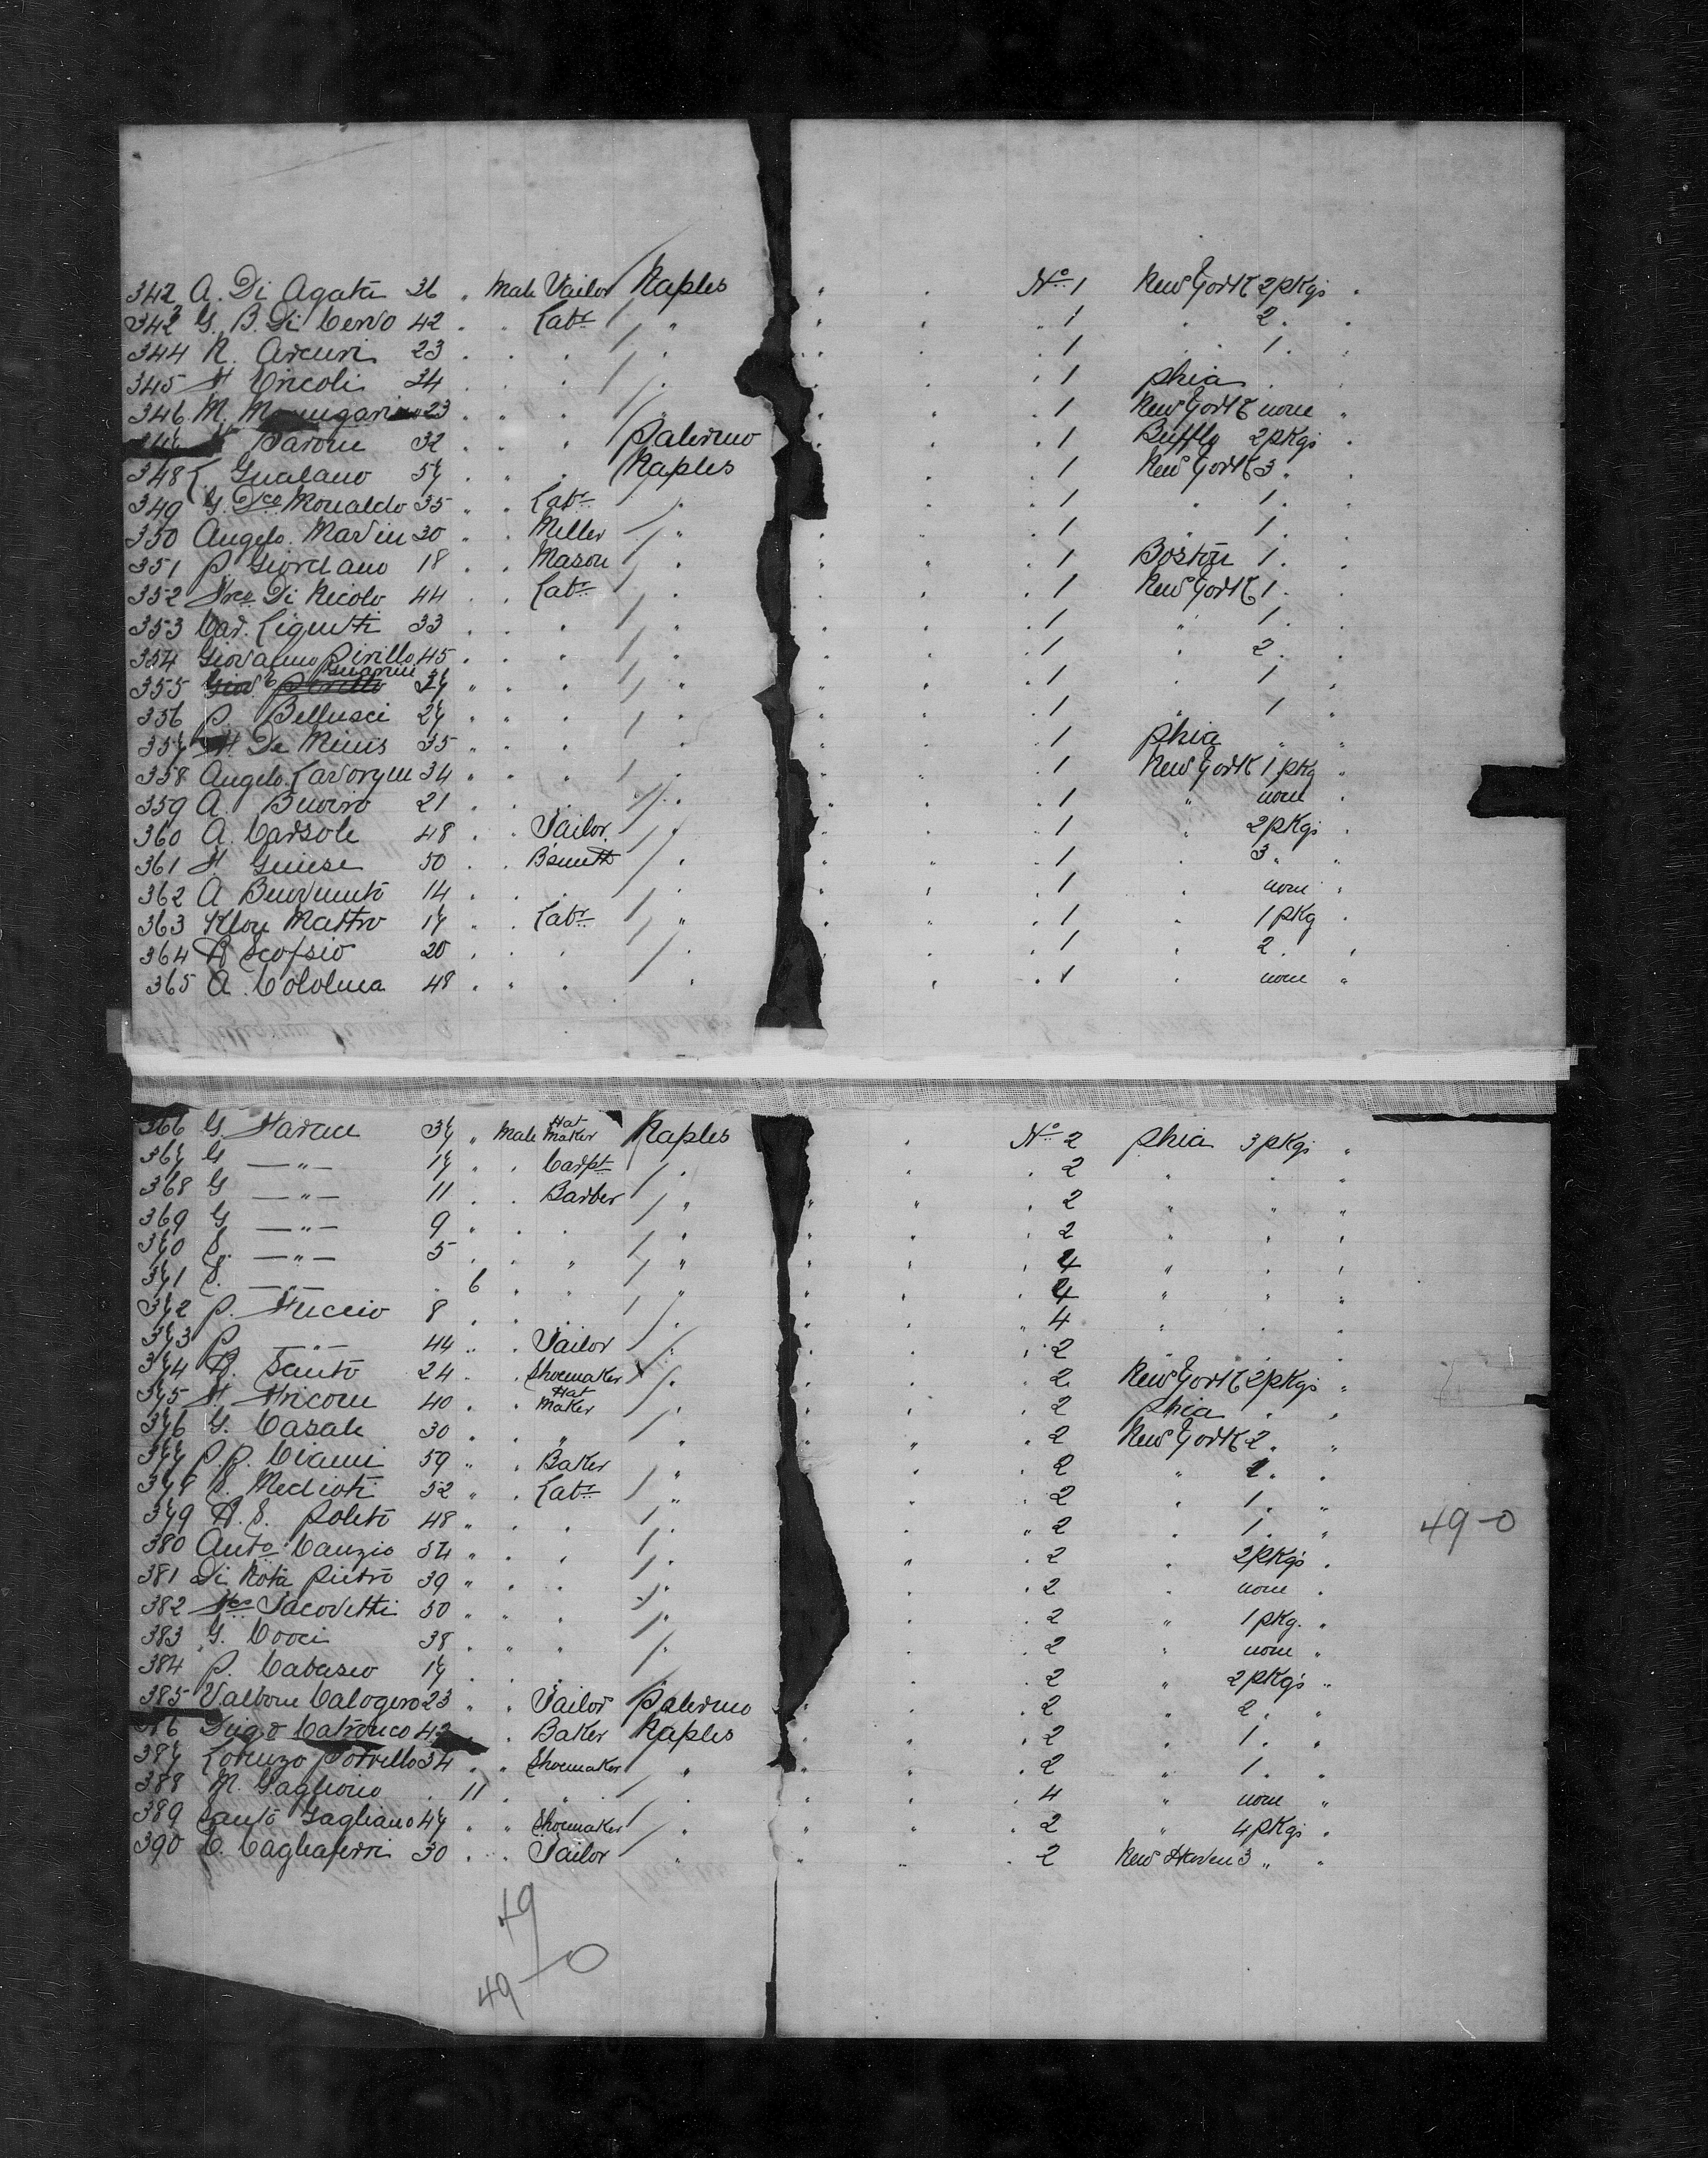 342 A. Di Agata 36 " Male Tailor Naples " " No 1 New York 2 pkgs "
343 G. B. Di Cervo 42 " " Labr " " " " 1 " 2 " "
344 R. Arcuri 23 " " " " " " " 1 " 1 " "
345 Ericoli 34 " " " " " " " 1 Phia " "
346 M. 23 " " " " " " " 1 New York none "
Barone 32 " " " Palermo " " " 1 Bufflo 2 pkgs "
348 L. Gualano 57 " " " Naples " " " 1 New York 3 " "
349 G. Dco Monaldo 35 " " Labr " " " " 1 " 1 " "
350 Angelo Marin 30 " " Miller " " " " 1 " 1 " "
351 P. Giordano 18 " " Mason " " " " 1 Boston 1 " "
352 Frco Di Nicolo 44 " " Labr " " " " 1 New York 1 " "
353 Car. Ligusti 33 " " " " " " " 1 " 1 " "
354 Giovanno Pirillo 45 " " " " " " " 1 " 2 " "
355 Guarini 27 " " " " " " " 1 " 1 "
356 P. Bellusci 27 " " " " " " " 1 " 1 "
357 De Minis 35 " " " " " " " 1 Phia " "
358 Angelo Lavorgni 34 " " " " " " " 1 New York 1 pkg "
359 A. 21 " " " " " " " 1 " none "
360 A. Carsole 48 " " Tailor " " " " 1 " 2 pkgs "
361 F. 50 " " B'smith " " " " 1 " 3 " "
362 A Benvenuto 14 " " " " " " " 1 " none "
363 Mastro 17 " " Labr " " " " 1 " 1 pkg "
364 20 " " " " " " " 1 " 2 " "
365 A. Cololuca 48 " " " " " " 1 " none "
366 G. 37 " Male Hat Maker Naples " No 2 Phia 3 pkgs "
367 G — " — 17 " " Carptr " " " 2 " " "
368 G — " — 11 " " Barber " " " " 2 " " "
369 G — " — 9 " " " " " " " 2 " " "
370 S. — " — 5 " " " " " " " 4 " " "
371 S. — " — " 6 " " " " " " 4 " " "
372 P. Fuccio 8 " " " " " " " 4 " " "
373 P — " — 44 " " Tailor " " " " 2 " " "
374 R. Santo 24 " " Shoemaker " " " " 2 New York 2 pkgs "
375 F. Fricone 40 " " Hat Maker " " " " 2 Phia " "
376 G. Casale 30 " " " " " " " 2 New York 2 " "
377 P. P. Cianni 59 " " Baker " " " 2 " 2 " "
378 S. Medioti 52 " " Labr " " " 2 " 1 " "
379 R. S. Polito 48 " " " " " " 2 " 1 " " 49-0
380 Anto Canzio 54 " " " " " " 2 " 2 pkgs "
381 Di Nota Pietro 39 " " " " " " 2 " none "
382 Iacovetti 50 " " " " " " 2 " 1 pkg. "
383 G. Cocci 38 " " " " " " 2 " none "
384 P. Cabasio 17 " " " " " " 2 " 2 pkgs "
385 Valbone Calogero 23 " " Tailor Palermo " " 2 " 2 " "
386 42 " " Baker Naples " " " 2 " 1 " "
387 Lorenzo Porrello 34 " " Shoemaker " " " " 2 " 1 " "
388 M. Gagliano " 11 " " " " " " 4 " none "
389 Santo Gagliano 47 " " Shoemaker " " " " 2 " 4 pkgs "
390 C. Cagliaferri 30 " " Tailor " " " " 2 New Haven 3 " "
49
49-0